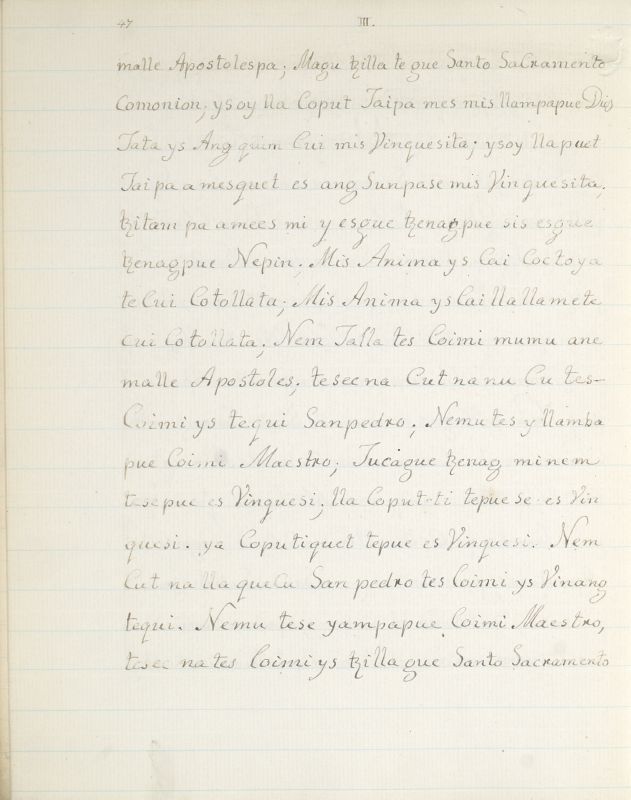 47 III.
malle Apostolespa; Magu tzilla te gue Santo SaCramento
Comonion; ysoy lla Coput Taipa mes mis llampapue Dios
Tata ys Ang quim Cui mis Vinquesita; ysoy lla puet
Taipa a mesquet es ang Sunpase mis Vinguesita;
tzitam pa amees mi y esgue tzenagpue sis esgue
tzenagpue Nepin; Mis Anima ys Cai Coctoya
te Cui Cotollata; Mis Anima ys Cai llallamete
cui Cotollata; Nem Talla tes Coimi mumu ane
malle Apostoles; tesecna Cut na nu Cu tes-
Coimi ys tequi Sanpedro; Nemu tes y llamba
pue Coimi Maestro; Jucague tzenag minem
tese pue es Vinguesi; lla Coput-ti tepue se es Vin
quesi. ya Coputiquet tepue es Vinquesi. Nem
Cut na lla que Cu San pedro tes Coimi ys Vinang
tequi. Nemu tese yampapue Coimi Maestro,
tesec na tes Coimi ys tzilla gue Santo Sacramento